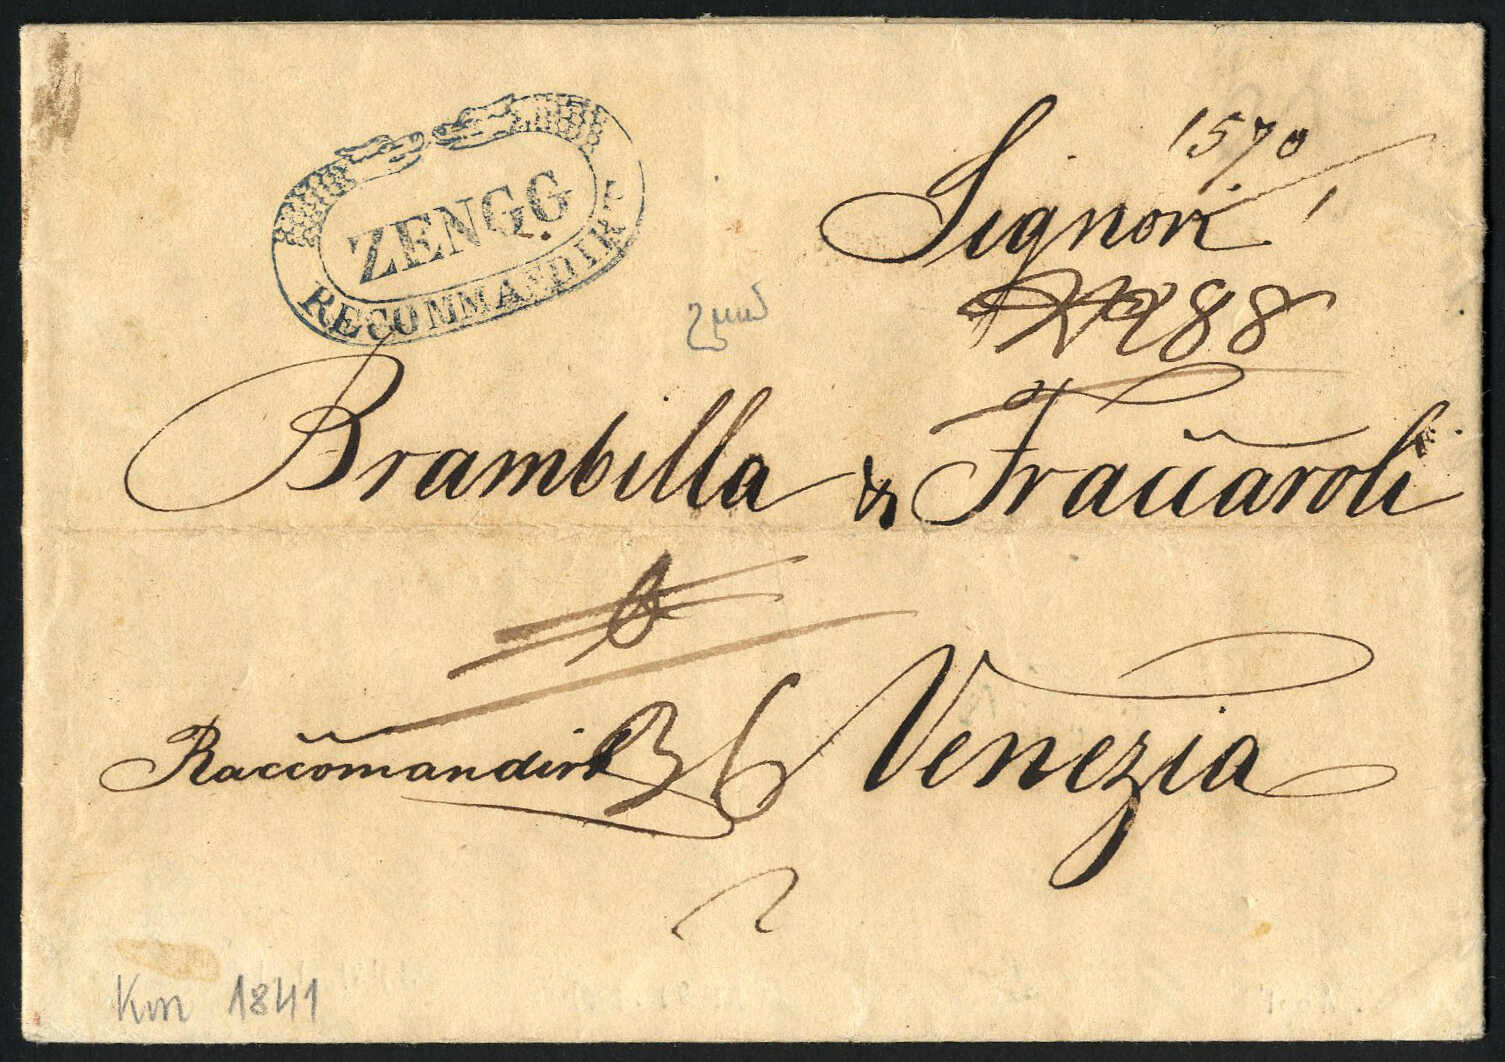 ZENGG
RECOMMANDIRT
1570
Signori
88
Brambilla & Fraccaroli
6
Raccomandirt 36 Venezia
1841